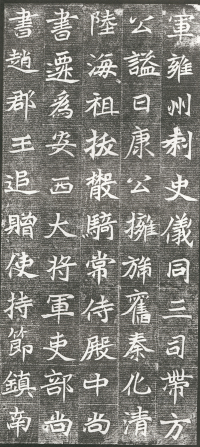 軍雍州刺史儀同三司帶方
公謚曰康公擁旆舊秦化清
陸海祖拔散騎常侍殿中尚
書遷為安西大将軍吏部尚
書趙郡王追贈使持節鎮南